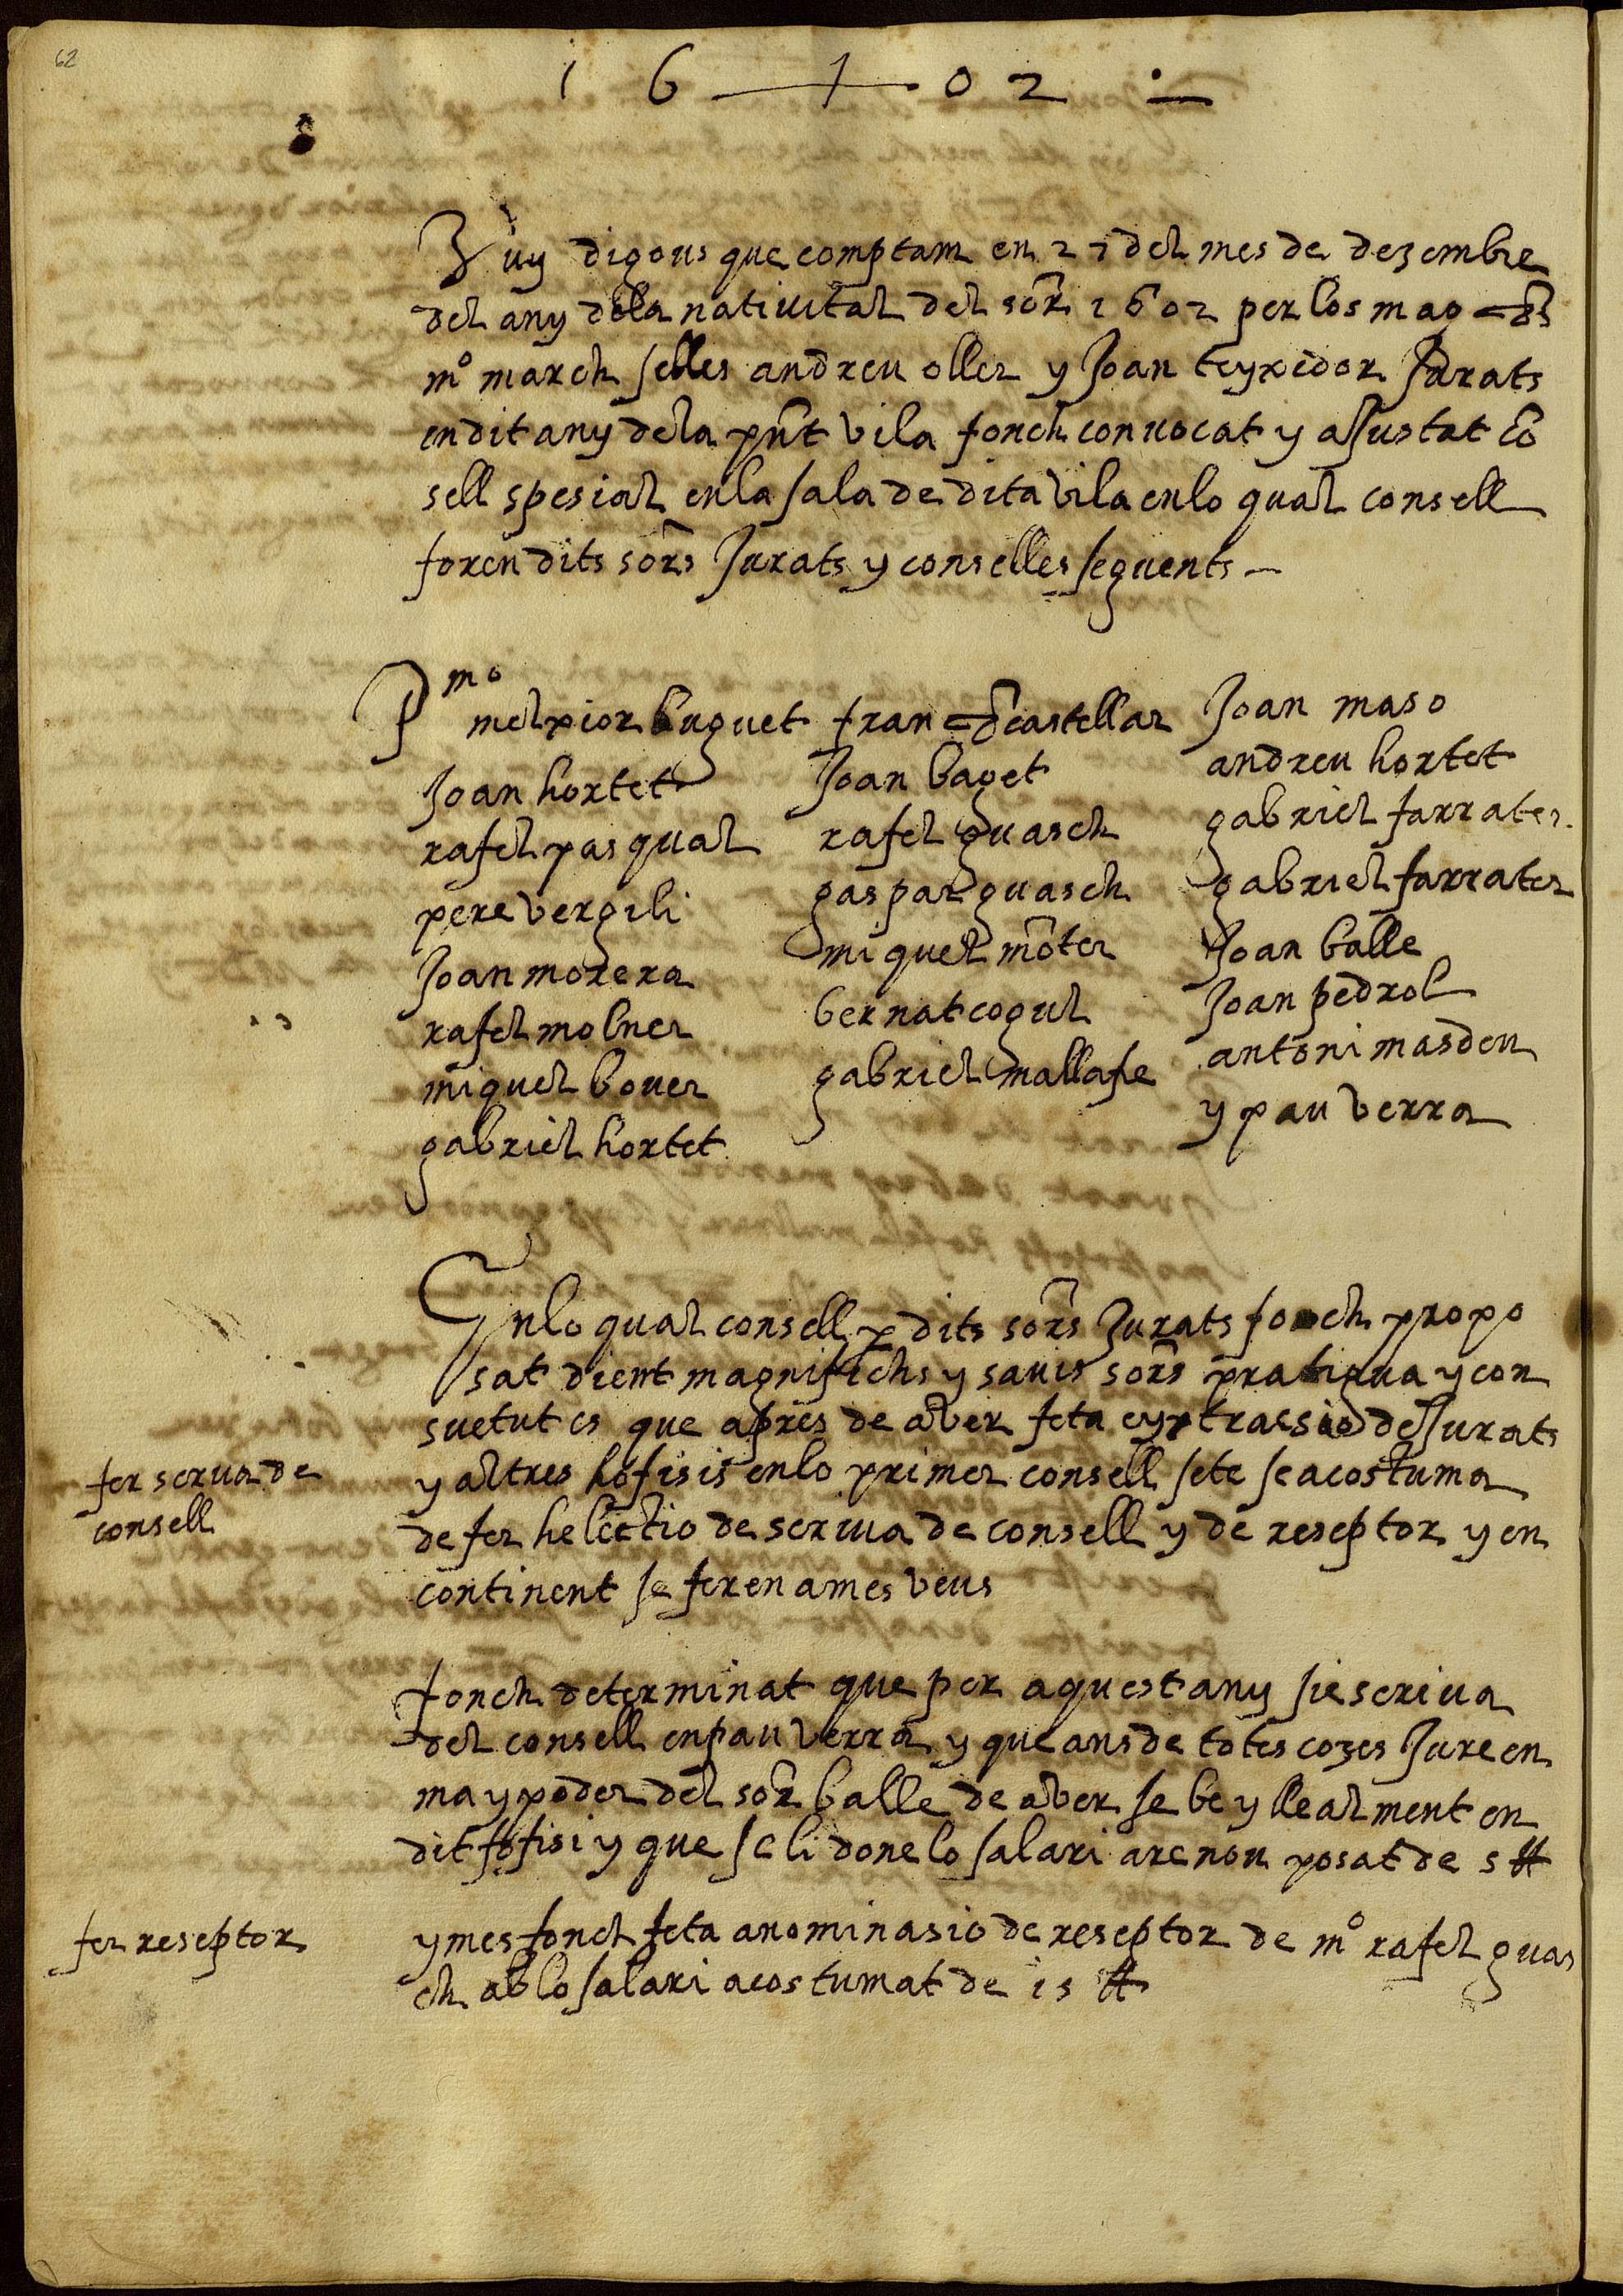 62
16 + 02
Vuy digous que comptam en 27 del mes de dezembre
del any dela nativitat del sōr 1602 per los mag chs
mº march selles andreu oller y Joan teyxedor Jurats
en dit any dela pñt vila fonch convocat y aJustat cō
sell spesial en la sala de dita vila en lo qual consell
foren dits sōrs Jurats y conselles seguents —
Pmo melxior buguet
Joan hortet
rafel pasqual
pere vergili
Joan morera
rafel molner
miquel bover
gabriel hortet
franch castellar
Joan baget
rafel guasch
gaspar guasch
miquel mōter
bernat cogul
gabriel mallafe
Joan maso
andreu hortet
gabriel farrater
gabriel farrater
Joan balle
Joan pedrol
antoni masdeu
y pau verra
En lo qual consell p dits sōrs Jurats fonch propo
sat dient magnifichs y savis sōrs pratiqua y con
suetut es que apres de aver feta eyxtracsio de Jurats
y altres hofisis en lo primer consell sete se acostuma
de fer helectio de scriva de consell y de reseptor y en
continent se feren a mes veus
fer scriva de
consell
fonch determinat que per aquest any sie scriva
del consell en pau verra y que ans de totes cozes Jure en
ma y poder del sōr balle de averse be y llealment en
dit hofisi y que se li done lo salari are nou posat de 5 ₶
fer reseptor
y mes fonch feta anominasio de reseptor de mº rafel guas
ch ab lo salari acostumat de 15 ₶